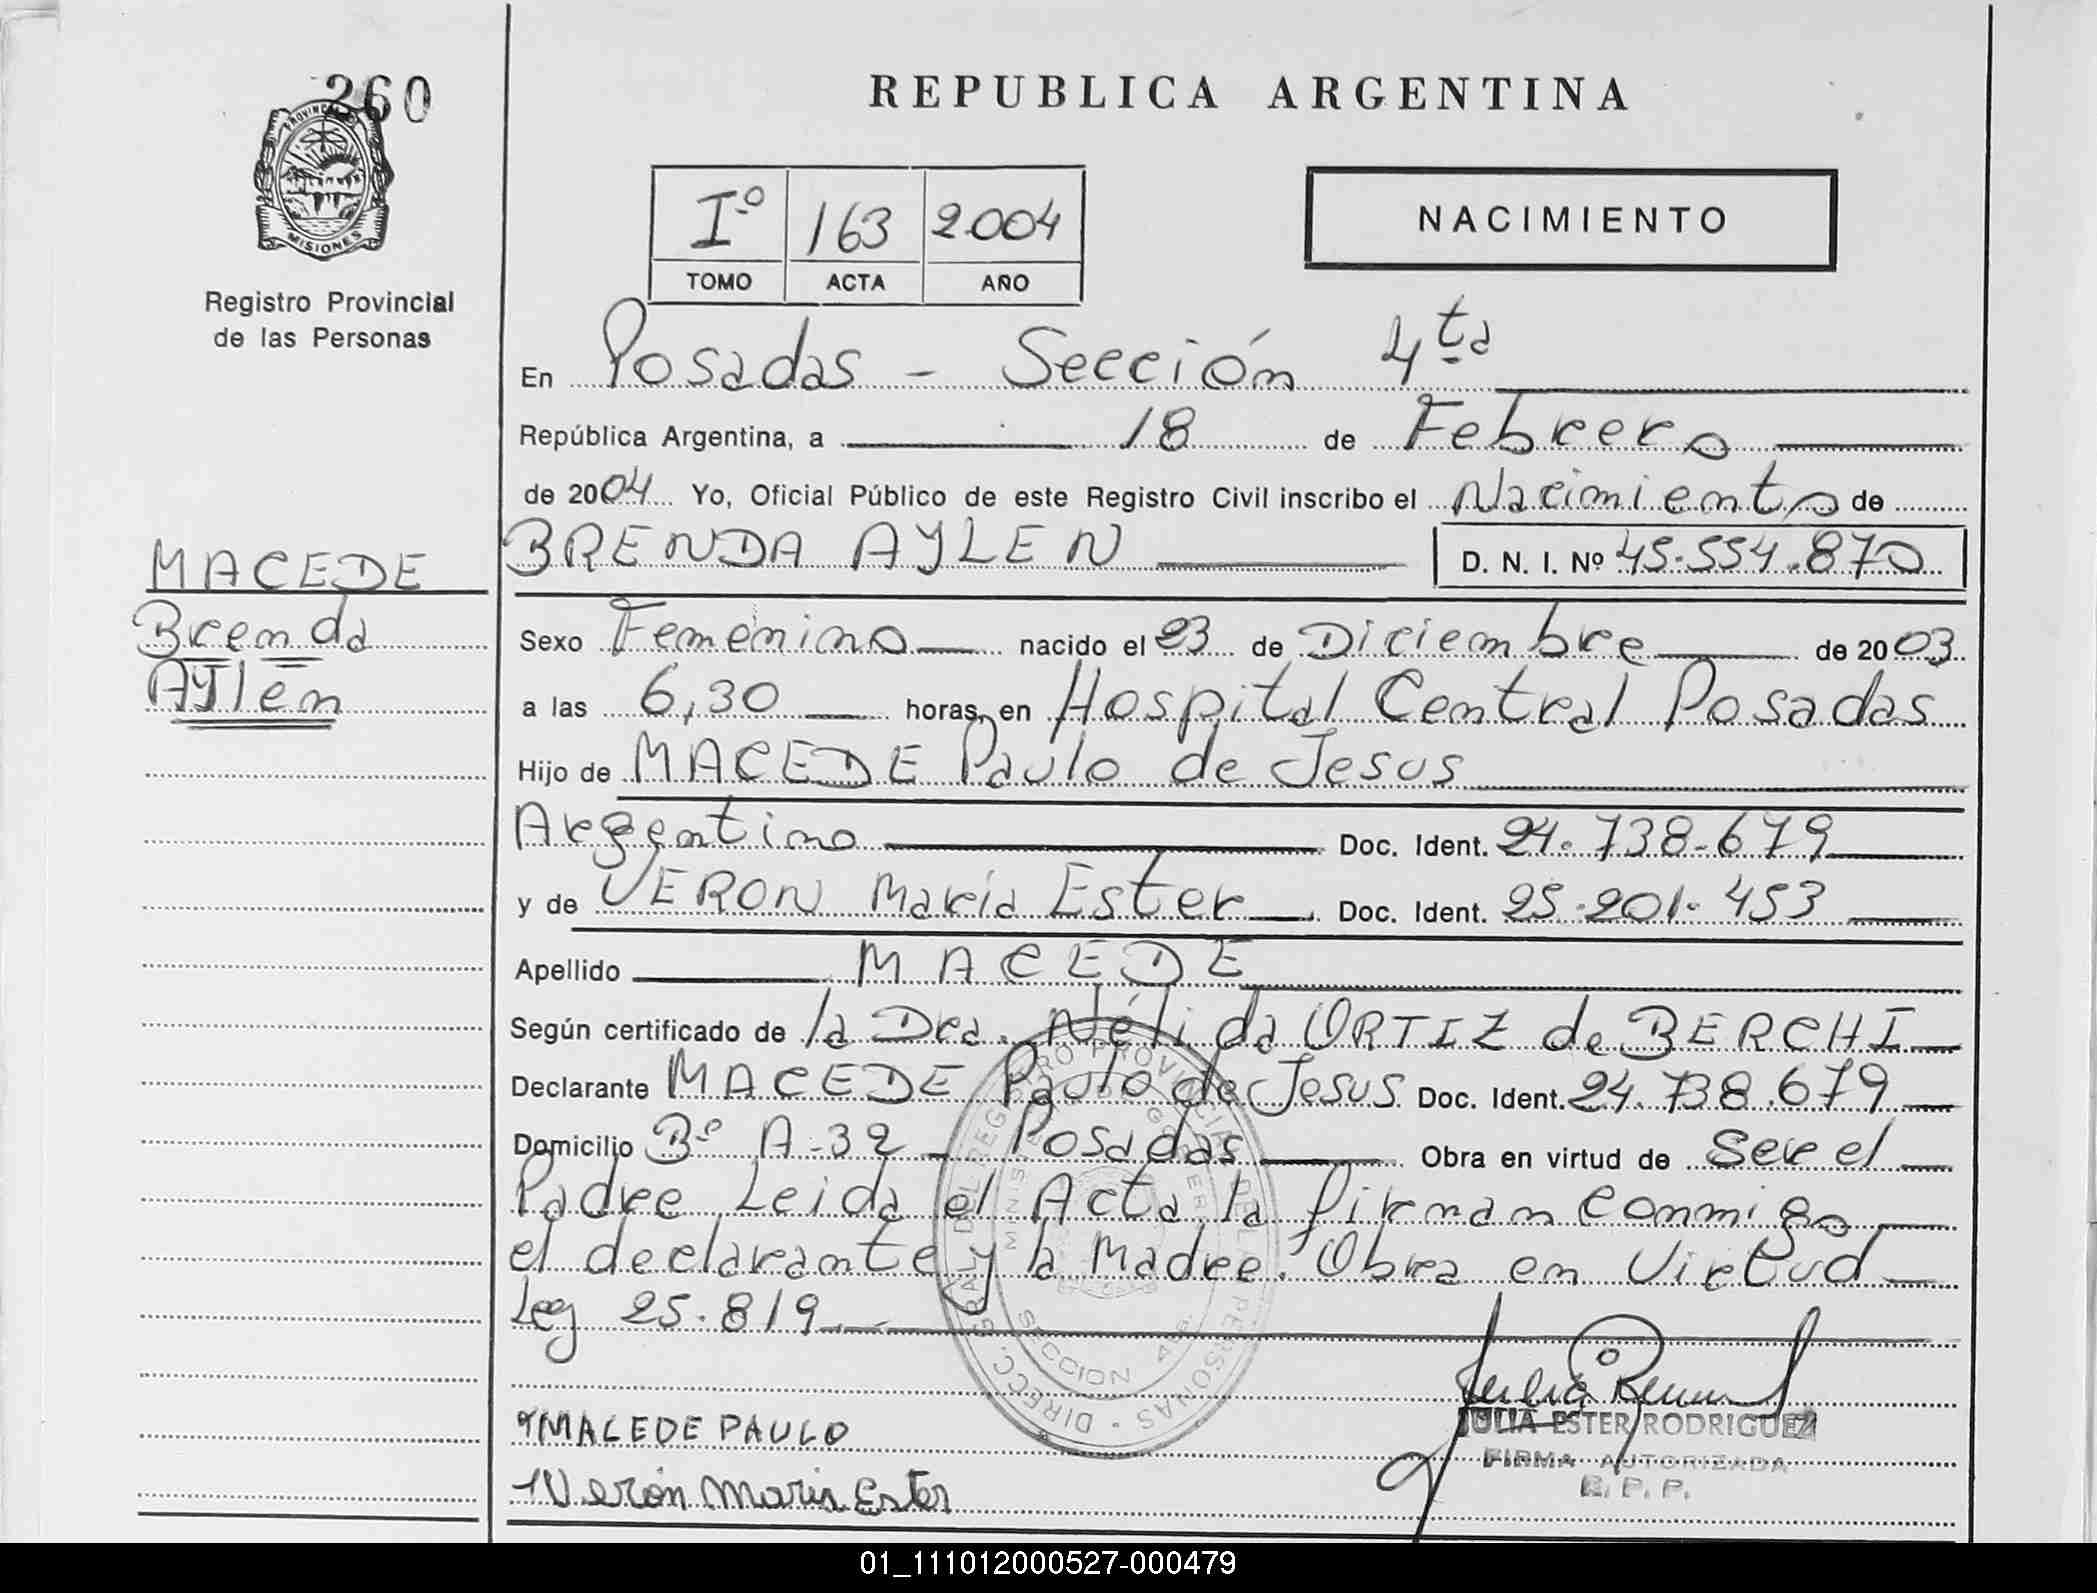 260
PROVINCIA DE
MISIONES
Registro Provincial
de las Personas
MACEDE
Brenda
Aylen
REPUBLICA ARGENTINA
Iº 163 2.004
TOMO ACTA AÑO
NACIMIENTO
En Posadas - Sección 4ta
República Argentina, a 18 de Febrero
de 2004 Yo, Oficial Público de este Registro Civil inscribo el Nacimiento de
BRENDA AYLEN D. N. I. Nº 45.554.870
Sexo Femenino nacido el 23 de Diciembre de 2003
a las 6,30 horas, en Hospital Central Posadas
Hijo de MACEDE Paulo de Jesus
Argentino Doc. Ident. 24.738.679
y de VERON María Ester Doc. Ident. 25.201.453
Apellido MACEDE
Según certificado de la Dra. Nélida ORTIZ de BERCHI
Declarante MACEDE Paulo de Jesus Doc. Ident. 24.738.679
Domicilio Bº A-32 - Posadas Obra en virtud de Ser el
Padre Leida el Acta, la firman conmigo
el declarante y la Madre. Obra en Virtud
Ley 25.819
DIRECC. GRAL. DEL REGISTRO PROVINCIAL DE LAS PERSONAS
SECCION 4ta.
MACEDE PAULO
Verón Maria Ester
JULIA ESTER RODRIGUEZ
FIRMA AUTORIZADA
R. P. P.
01_111012000527-000479